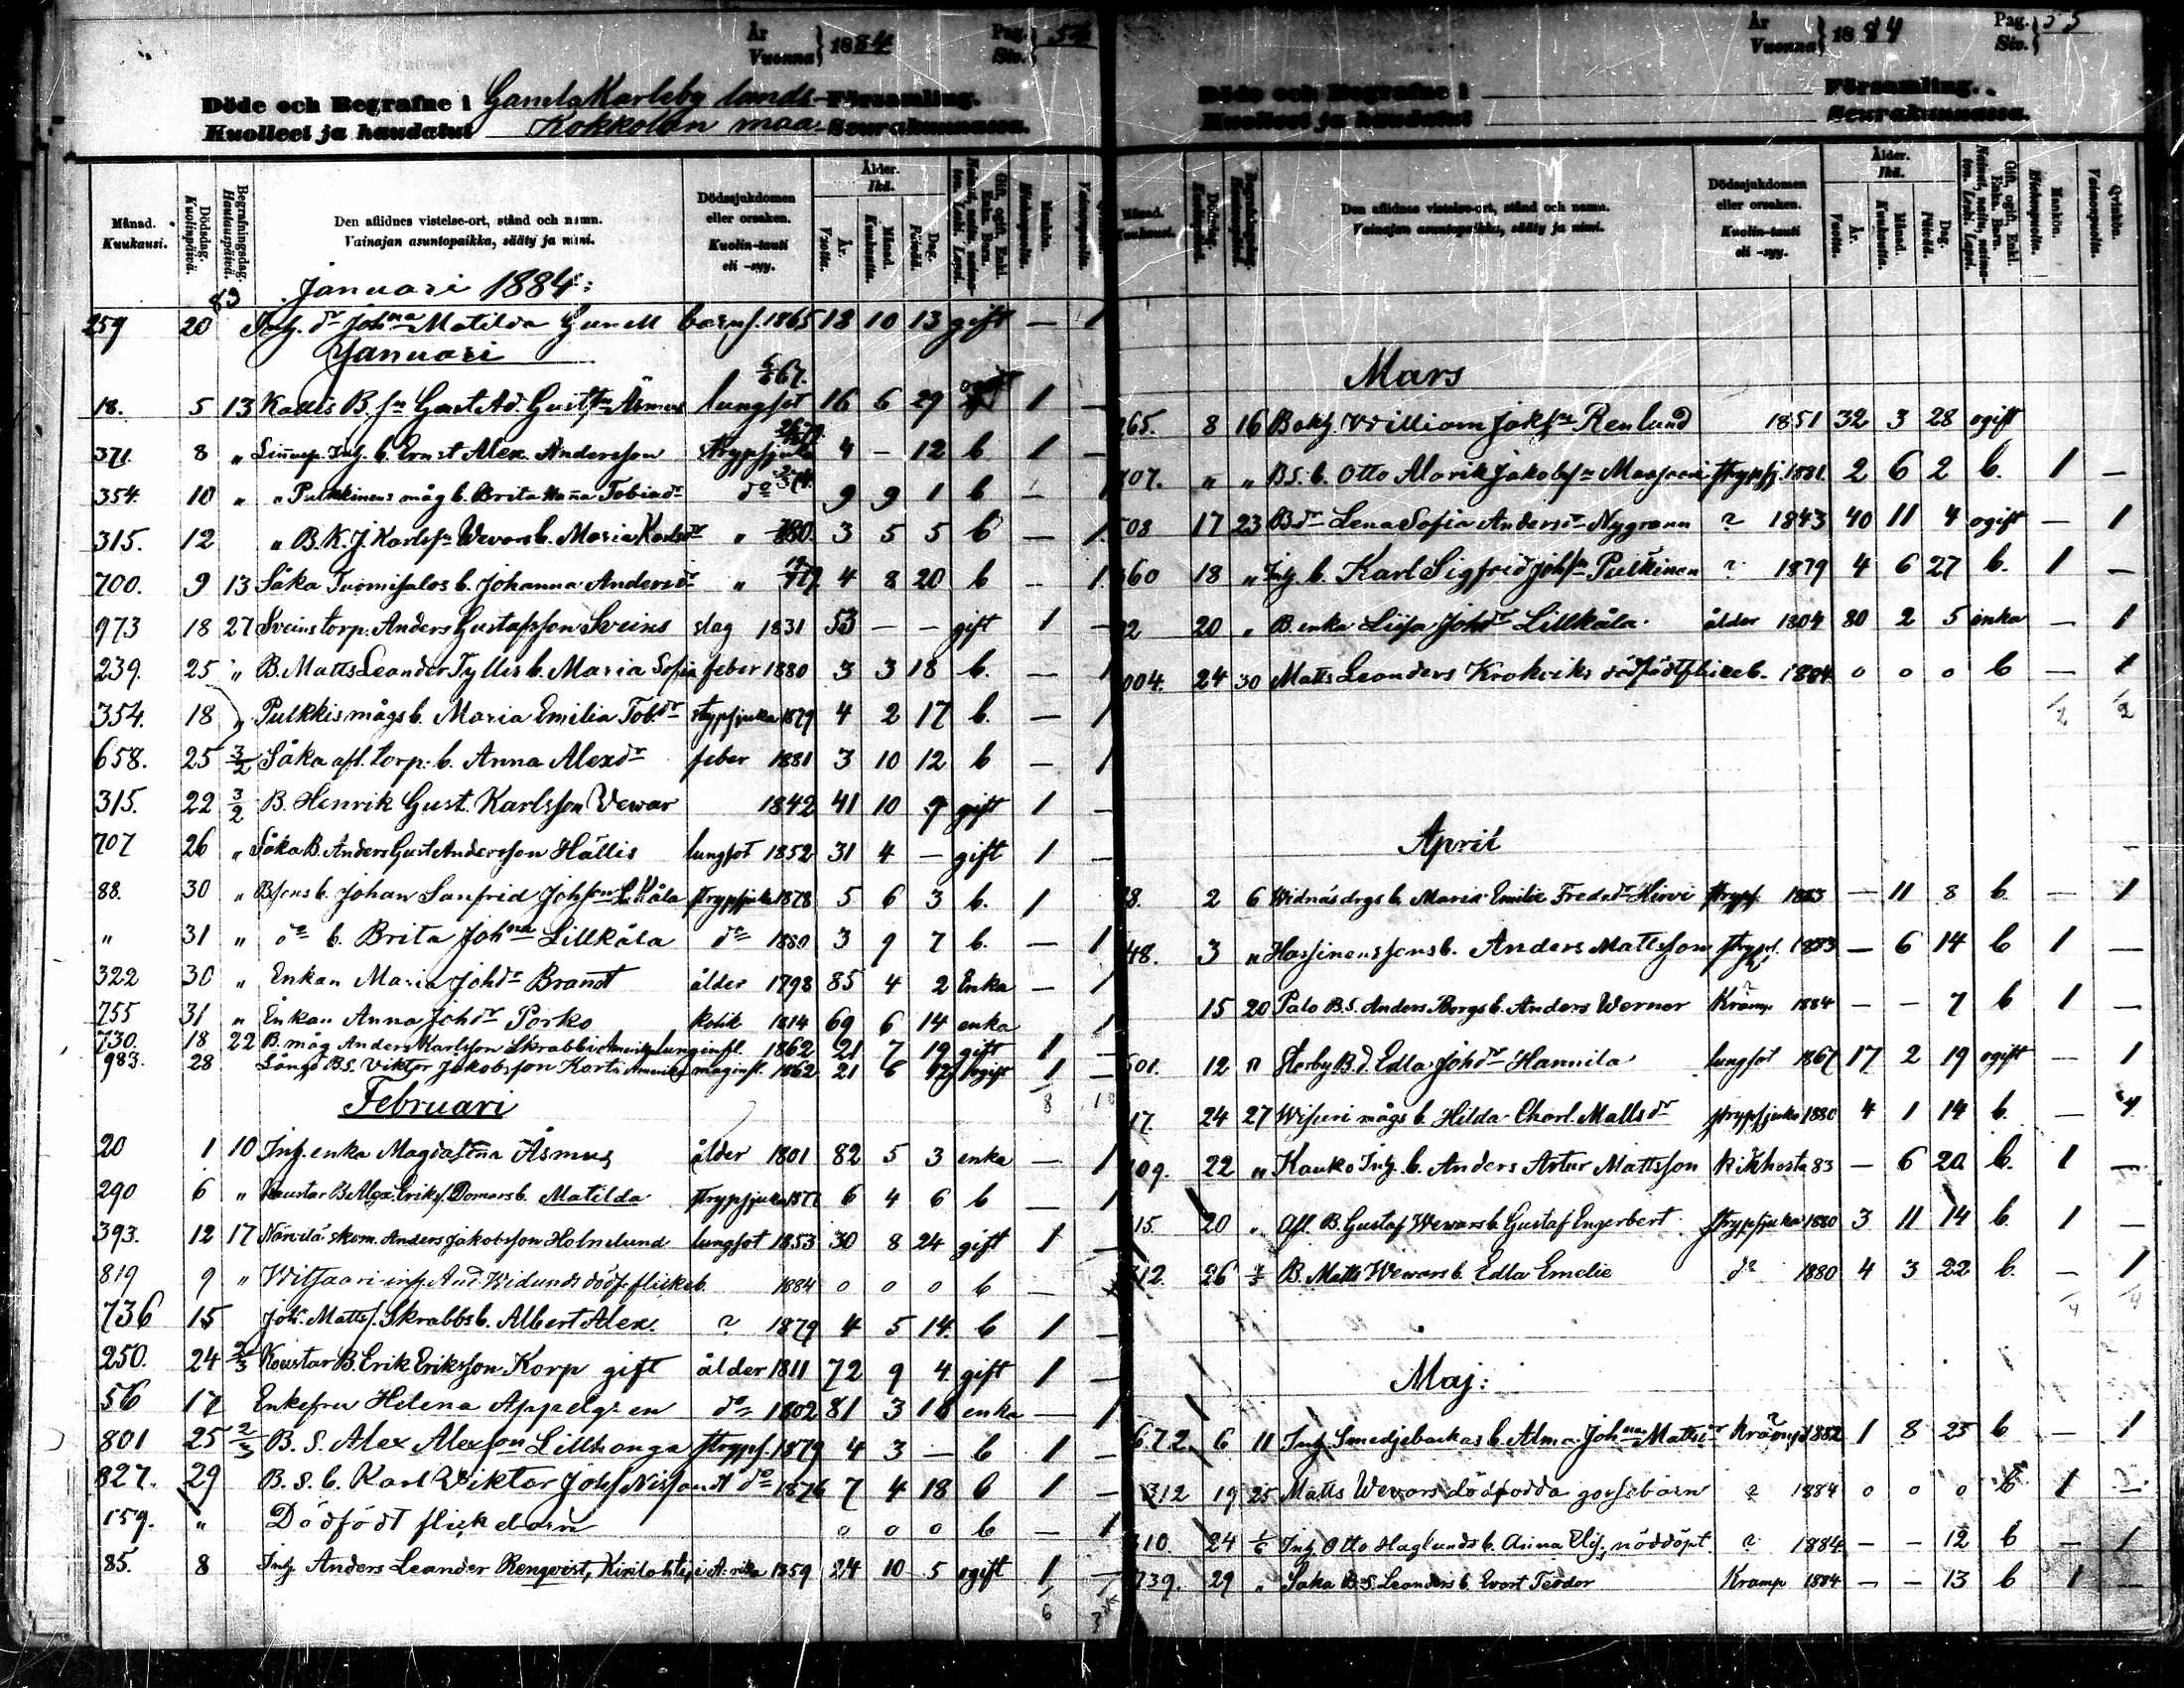 År Vuonna } 1884 Pag. Siv. } 54
Döde och Begrafne i Gamla Karleby lands-Församling.
Kuolleet ja haudatut Kokkolan maa-Seurakunnassa.
Månad. Kuukausi. Dödsdag. Kuolinpäivä. Begrafningsdag. Hautauspäivä. Den aflidnes vistelse-ort, stånd och namn. Vainajan asuntopaikka, sääty ja nimi. Dödssjukdomen eller orsaken. Kuolin-tauti eli -syy. Ålder. Ikä. År. Vuotta. Månad. Kuukautta. Dag. Päivää. Gift, ogift, Enkl. Enka. Barn. Mankön. Miehenpuolta.
Januari 1884:
83
259 20 Inh. dr Johna Matilda Gunell barns. 1865 18 10 13 gift — 1
Januari
18. 5 13 Kallis B. sn Gust Ad. Gustsn Åsmus lungsot 16 6 29 ogift 1 —
371. 8 " Inh. b. Ernst Alex. Andersson strypsjuka 4 — 12 b 1 —
354. 10 " " Pulkkinens måg b. Brita Hanna Tobiadr do 9 9 1 b — 1
315. 12 " B. K. J. Karlssn Wevars b. Maria Karlsdr " 880. 3 5 5 b — 1
700. 9 13 Såka Tuomisalos b. Johanna Andersdr " 4 8 20 b — 1.
973 18 27 Sveins torp. Anders Gustafsson Sveins slag 1831 53 — — gift 1 —
239. 25 " B. Matts Leander Tyllis b. Maria Sofia feber 1880 3 3 18 b. — 1
354. 18 " Pulkkis mågs b. Maria Emilia Tob.dr strypsjuka 1879 4 2 17 b. — 1
658. 25 3/2 Såka afl. torp. b. Anna Alexdr feber 1881 3 10 12 b — 1
315. 22 3/2 B. Henrik Gust. Karlsson Vewar 1842 41 10 9 gift 1 —
707 26 " Såka B. Anders Gust Andersson Hällis lungsot 1852 31 4 — gift 1 —
88. 30 " Bsons b. Johan Sanfrid Johsson L. Kåla strypsjuka 1878 5 6 3 b. 1
" 31 " do b. Brita Johna Lillkåla do 1880 3 9 7 b. — 1
322 30 " Enkan Maria Johdr Brandt ålder 1798 85 4 2 Enka — 1
755 31 " Enkan Anna Johdr Porko kolik 1814 69 6 14 enka 1
730. 18 22 B. måg Anders Karlsson Skrabb i Amerika lunginfl. 1862 21 7 19 gift 1 —
983. 28 Långö B.S. Viktor Jakobsson Karti Amerika maginfl. 1862 21 6 12 ogift 1 —
8 10
Februari
20 1 10 Inh. enka Magdalena Åsmus ålder 1801 82 5 3 enka — 1
290 6 " Kaustar B Alex. Eriks. Domars b. Matilda strypsjuka 1877 6 4 6 b — 1
393. 12 17 Närvilä skom. Anders Jakobsson Holmlund lungsot 1853 30 8 24 gift 1 —
819 9 " Witsaari inh. And. Widunds dödf. flickeb. 1884 0 0 0 b —
736 15 Joh. Matts. Skrabbs b. Albert Alex. ? 1879 4 5 14. b 1 —
250. 24 2/3 Kaustar B. Erik Eriksson Korp gift ålder 1811 72 9 4. gift 1 —
56 17 Enkefru Helena Appelgren do 1802 81 3 18 enka — 1
801 25 2/3 B. S. Alex Alexson Lillhonga strypsj. 1879 4 3 — b 1 —
827. 29 B. S. b. Karl Viktor Johs. do 1876 7 4 18 b 1 —
159. " Dödfödt flickebarn 0 0 0 b — 1
85. 8 Inh. Anders Leander Renqvist, Kirilahti, i A:rika 1859 24 10 5 ogift 1 —
6
År Vuonna } 1884 Pag. Siv. } 55
Döde och Begrafne i Församling.
Kuolleet ja haudatut Seurakunnassa.
Månad. Kuukausi. Den aflidnes vistelse-ort, stånd och namn. Vainajan asuntopaikka, sääty ja nimi. Dödssjukdomen eller orsaken. Kuolin-tauti eli -syy. Ålder. Ikä. År. Vuotta. Månad. Kuukautta. Dag. Päivää. Gift, ogift, Enkl. Enka. Barn. Mankön. Miehenpuolta. Qvinkön. Vaimonpuolta.
Mars
265. 8 16 Bokh. William Joksn Renlund 1851 32 3 28 ogift
707. " " B.S. b. Otto Alarik Jakobsn strypsj. 1881. 2 6 2 b. 1 —
508 17 23 Bdr Lena Sofia Andersdr Nygrann ? 1843 40 11 4 ogift — 1
360 18 " Inh. b. Karl Sigfrid Johsn Pulkinen ? 1879 4 6 27 b. 1 —
92 20 " B. enka Liisa Johdr Lillkåla. ålder 1804 80 2 5 enka — 1
004. 24 30 Matts Leanders Krokviks dödfödt flickeb. 1884 0 0 0 b — 1
/2 /2
April
8. 2 6 Widnäs drgs b. Maria Emilie Fredrdr Hirvi strypsj. 1883 — 11 8 b. — 1
48. 3 " Hassinens sons b. Anders Mattsson strypsj. 1883 — 6 14 b 1 —
15 20 Palo B.S. Anders Borgs b. Anders Werner Kramp 1884 — — 7 b 1 —
501. 12 " Storby B.d. Edla Johdr Hannila lungsot 1867 17 2 19 ogift — 1
17. 24 27 Wisuri mågs b. Hilda Charl. Mattsdr strypsjuka 1880 4 1 14 b. — 1
109. 22 " Kauko Inh. b. Anders Artur Mattsson kikhosta 83 — 6 20 b. 1 —
315. 20 " Afl. B. Gustaf Wewars b. Gustaf Engerbert strypsjuka 1880 3 11 14 b. 1 —
312. 26 B. Matts Wewars b. Edla Emelie do 1880 4 3 22 b. — 1
/4 /4
Maj:
672 6 11 Inh. Smedjebackas b. Alma Johna Mattsdr Kramp 1882 1 8 25 b — 1
312 19 25 Matts Wevars dödfödda gossebarn ? 1884 0 0 0 b 1 —
310. 24 1/6 Inh. Otto Haglunds b. Aina Elis., nöddöpt. ? 1884 — — 12 b — 1
739. 29 " Såka B.S. Leanders b. Evert Teodor Kramp 1884 — — 13 b 1 —